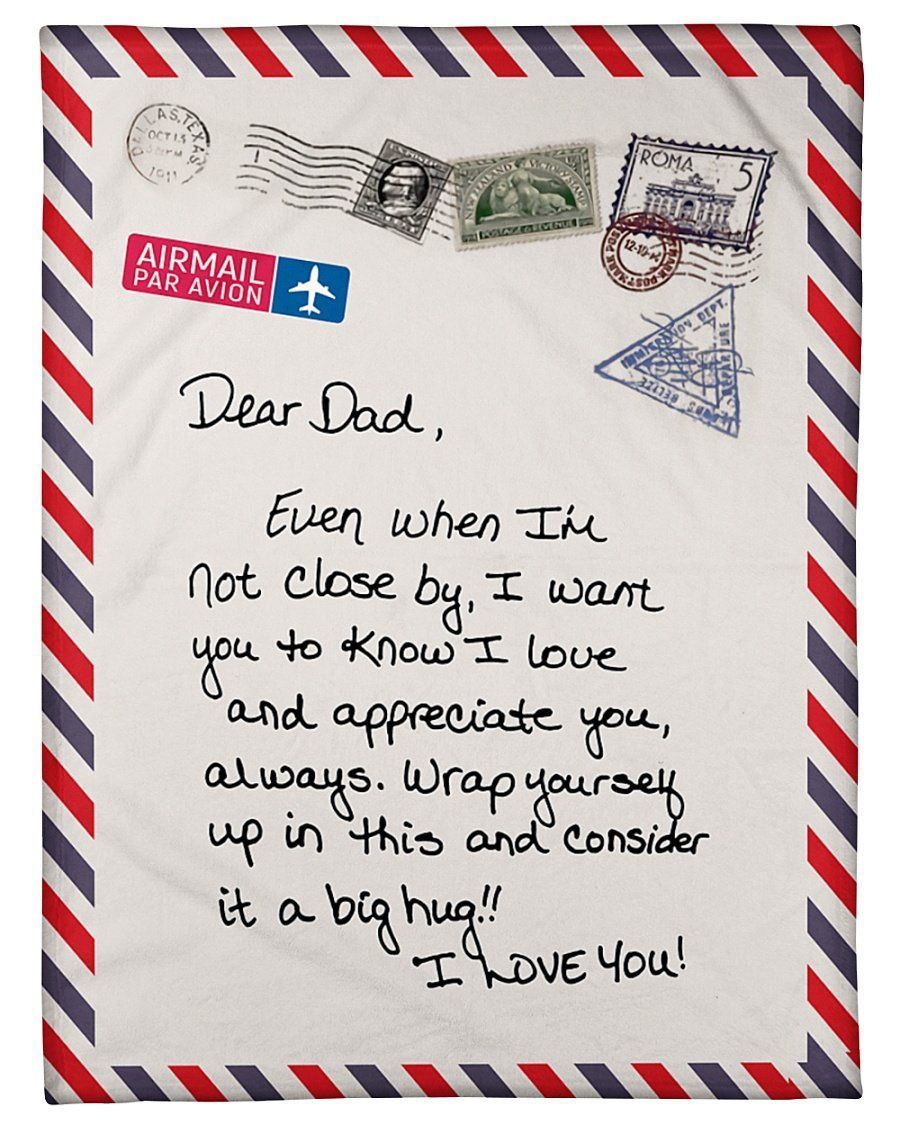 DALLAS, TEXAS
OCT 13
1911
ROMA
5
POSTAGE & REVENUE
12-10-
AIRMAIL
PAR AVION
IMMIGRATION DEPT.
DEPARTURE
BELIZE
Dear Dad,
Even when I'm
not close by, I want
you to know I love
and appreciate you,
always. Wrap yourself
up in this and consider
it a big hug!!
I LOVE YOU!